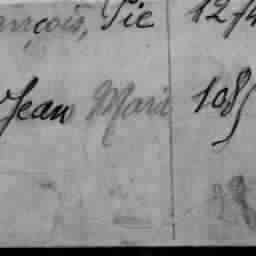 ançois, Pie 1274
Jean Marie 1085